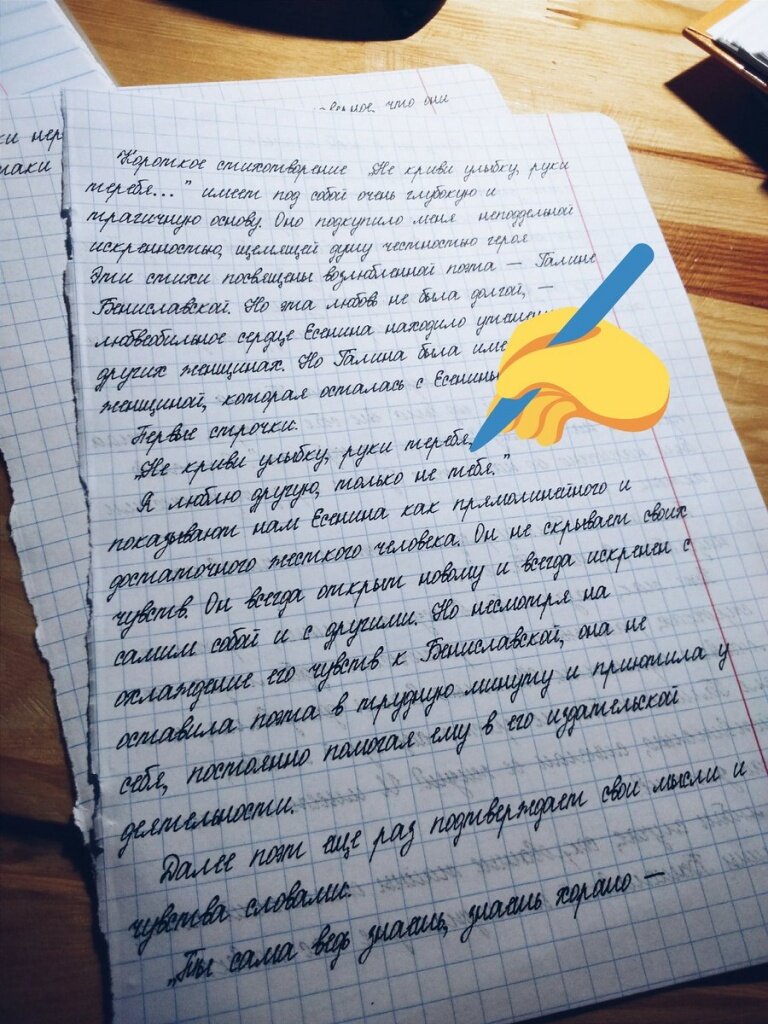 верное, что они
ки нер
таки
Короткое стихотворение „Не криви улыбку, руки
теребя...” имеет под собой очень глубокую и
трагичную основу. Оно подкупило меня неподдельной
искренностью, щемящей душу честностью героя
Эти стихи посвящены возлюбленной поэта — Галине
Бениславской. Но эта любовь не была долгой, —
любвеобильное сердце Есенина находило
других женщинах. Но Галина была
женщиной, которая осталась с
Первые строчки.
„Не криви улыбку, руки теребя,
Я люблю другую, только не тебя.”
показывают нам Есенина как прямолинейного и
достаточного жесткого человека. Он не скрывает своих
чувств. Он всегда открыт новому и всегда искренен с
самим собой и с другими. Но несмотря на
охлаждение его чувств к Бениславской, она не
оставила поэта в трудную минуту и приютила у
себя, постоянно помогая ему в его издательской
деятельности.
Далее поэт еще раз подтверждает свои мысли и
чувства словами:
„Ты сама ведь знаешь, знаешь хорошо —